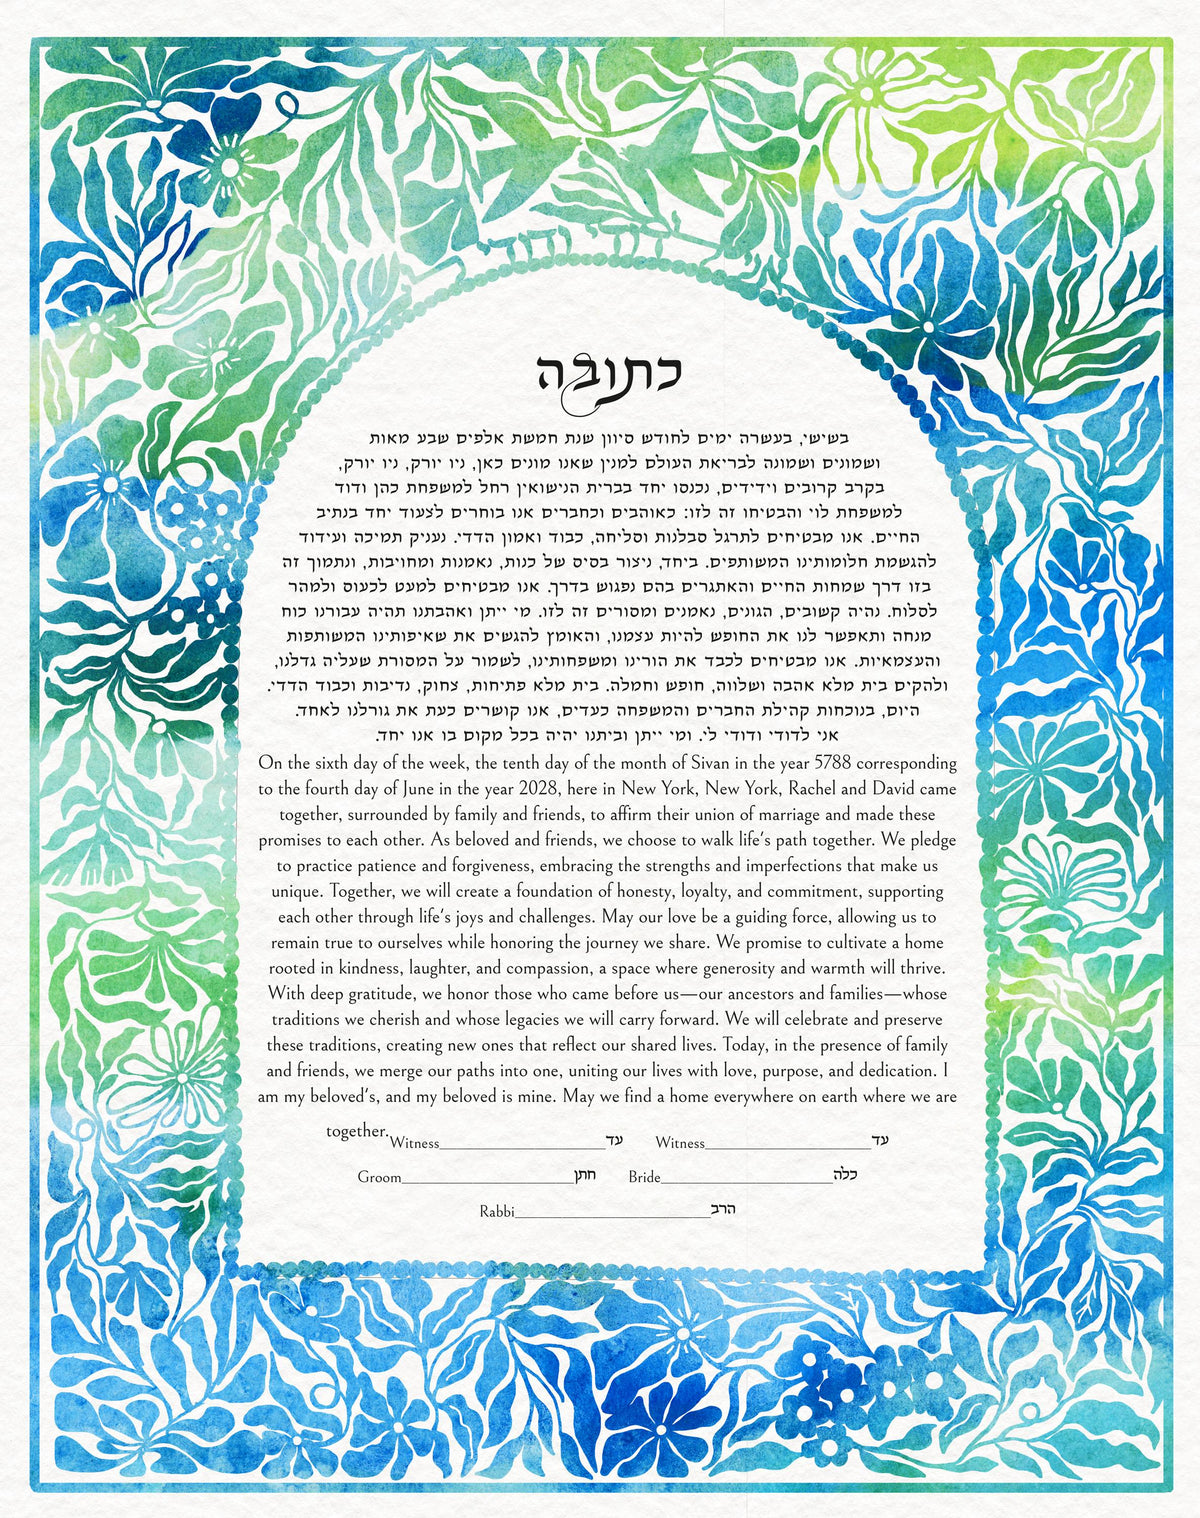 אני לדודי ודודי לי
כתובה
בשישי, בעשרה ימים לחודש סיוון שנת חמשת אלפים שבע מאות
ושמונים ושמונה לבריאת העולם למנין שאנו מונים כאן, ניו יורק, ניו יורק,
בקרב קרובים וידידים, נכנסו יחד בברית הנישואין רחל למשפחת כהן ודוד
למשפחת לוי והבטיחו זה לזו: כאוהבים וכחברים אנו בוחרים לצעוד יחד בנתיב
החיים. אנו מבטיחים לתרגל סבלנות וסליחה, כבוד ואמון הדדי. נעניק תמיכה ועידוד
להגשמת חלומותינו המשותפים. ביחד, ניצור בסיס של כנות, נאמנות ומחויבות, ונתמוך זה
בזו דרך שמחות החיים והאתגרים בהם נפגוש בדרך. אנו מבטיחים למעט לכעוס ולמהר
לסלוח. נהיה קשובים, הגונים, נאמנים ומסורים זה לזו. מי ייתן ואהבתנו תהיה עבורנו כוח
מנחה ותאפשר לנו את החופש להיות עצמנו, והאומץ להגשים את שאיפותינו המשותפות
והעצמאיות. אנו מבטיחים לכבד את הורינו ומשפחותינו, לשמור על המסורת שעליה גדלנו,
ולהקים בית מלא אהבה ושלווה, חופש וחמלה. בית מלא פתיחות, צחוק, נדיבות וכבוד הדדי.
היום, בנוכחות קהילת החברים והמשפחה כעדים, אנו קושרים כעת את גורלנו לאחד.
אני לדודי ודודי לי. ומי ייתן וביתנו יהיה בכל מקום בו אנו יחד.
On the sixth day of the week, the tenth day of the month of Sivan in the year 5788 corresponding
to the fourth day of June in the year 2028, here in New York, New York, Rachel and David came
together, surrounded by family and friends, to affirm their union of marriage and made these
promises to each other. As beloved and friends, we choose to walk life's path together. We pledge
to practice patience and forgiveness, embracing the strengths and imperfections that make us
unique. Together, we will create a foundation of honesty, loyalty, and commitment, supporting
each other through life's joys and challenges. May our love be a guiding force, allowing us to
remain true to ourselves while honoring the journey we share. We promise to cultivate a home
rooted in kindness, laughter, and compassion, a space where generosity and warmth will thrive.
With deep gratitude, we honor those who came before us—our ancestors and families—whose
traditions we cherish and whose legacies we will carry forward. We will celebrate and preserve
these traditions, creating new ones that reflect our shared lives. Today, in the presence of family
and friends, we merge our paths into one, uniting our lives with love, purpose, and dedication. I
am my beloved's, and my beloved is mine. May we find a home everywhere on earth where we are
together.
Witness____________________עד Witness____________________עד
Groom____________________חתן Bride____________________כלה
Rabbi____________________הרב